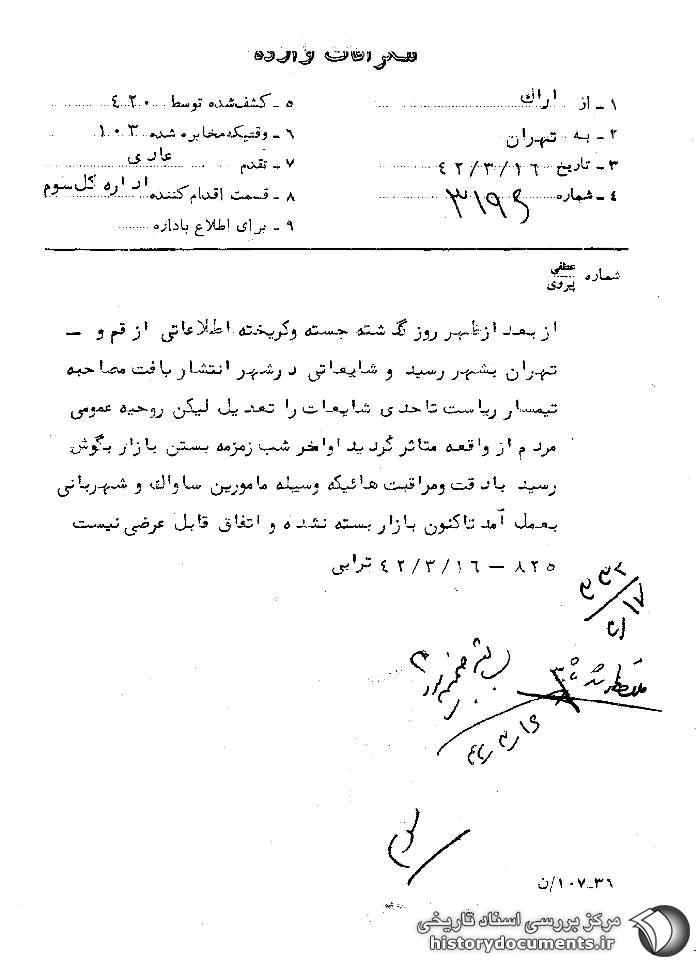 تلگرافات وارده
۱ ـ از اراك
۲ ـ به تهران
۳ ـ تاریخ ۴۲/۳/۱۶
۴ ـ شماره ۳۱۹۶
۵ ـ کشف شده توسط ۴۲۰
۶ ـ وقتیکه مخابره شده ۱۰۳
۷ ـ تقدم عادی
۸ ـ قسمت اقدام کننده اداره کل سوم
۹ ـ برای اطلاع باداره
شماره عطفی
پیروی
از بعد از ظهر روز گذشته جسته وگریخته اطلاعاتی از قم و ـ
تهران بشهر رسید و شایعاتی در شهر انتشار یافت مصاحبه
تیمسار ریاست تاحدی شایعات را تعدیل لیکن روحیه عمومی
مردم از واقعه متاثر گردید اواخر شب زمزمه بستن بازار بگوش
رسید بادقت ومراقبت هائیکه وسیله مامورین ساواك و شهربانی
بعمل آمد تاکنون بازار بسته نشده و اتفاق قابل عرضی نیست
۸۲۵ ـ ۴۲/۳/۱۶ ترابی
۳/۱۷
ملاحظه شد
۴۲/۳/۱۶
۳۶ـ۱۰۷/ن
مرکز بررسی اسناد تاریخی
historydocuments.ir